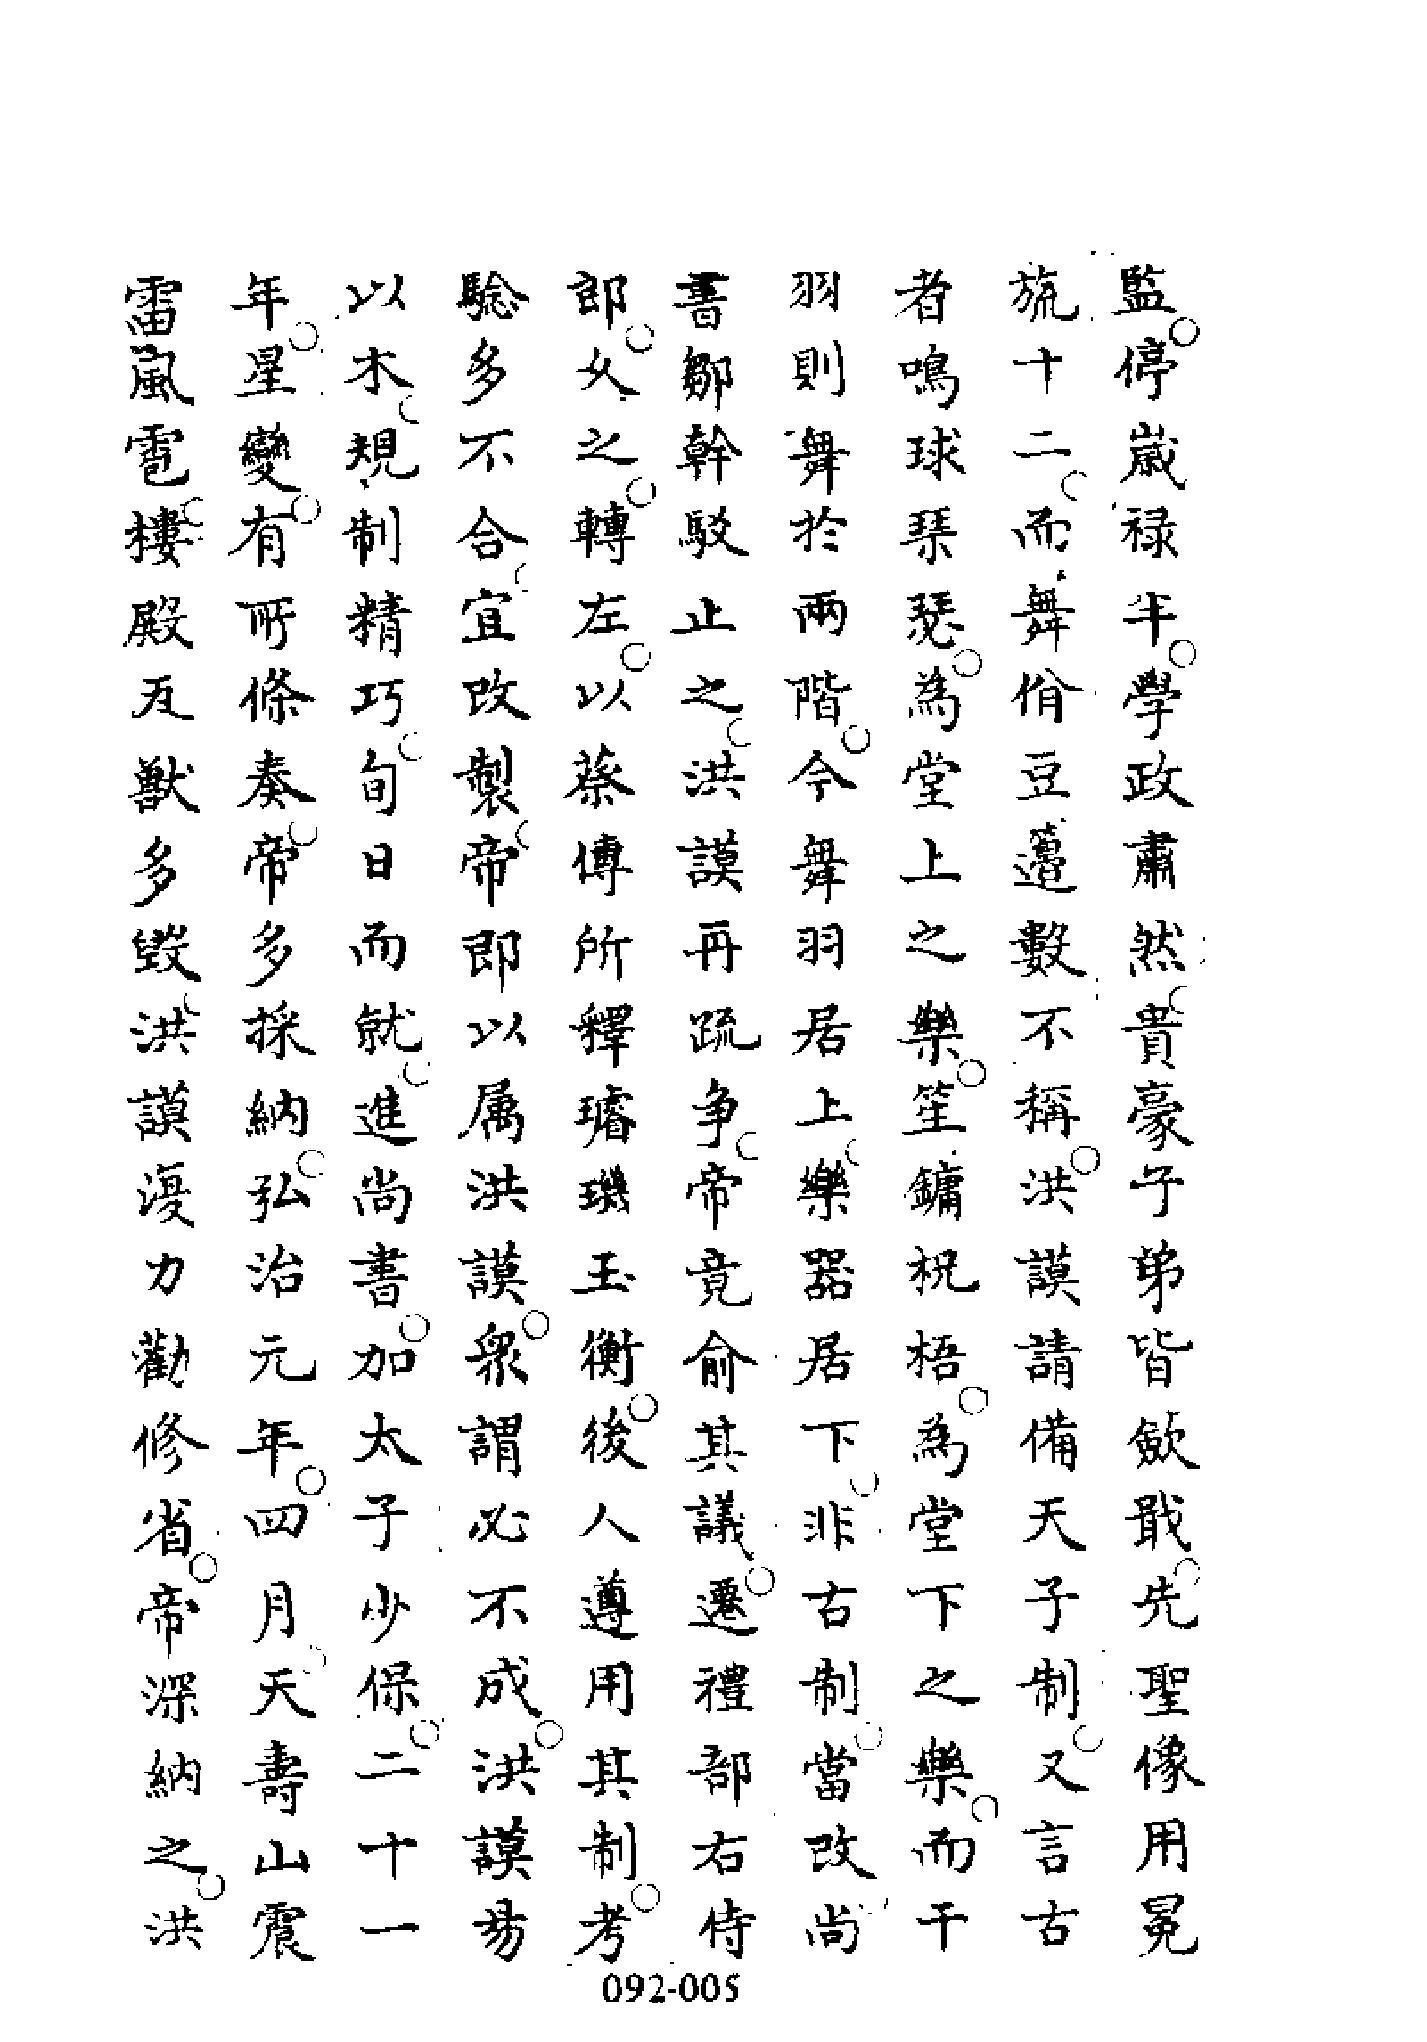 監停歲禄半學政肅然貴豪子弟皆歛戢先聖像用冕
旒十二而舞佾豆籩數不稱洪謨請備天子制又言古
者鳴球琴瑟為堂上之樂笙鏞柷梧為堂下之樂而干
羽則舞於兩階今舞羽居上樂器居下非古制當改尚
書鄒幹駁止之洪謨再疏争帝竟俞其議遷禮部右侍
郎久之轉左以蔡傳所釋璿璣玉衡後人遵用其制考
騐多不合宜改製帝即以属洪謨衆謂必不成洪謨易
以木規制精巧旬日而就進尚書加太子少保二十一
年星變有所條奏帝多採納弘治元年四月天壽山震
雷風雹樓殿瓦獸多毀洪謨復力勸修省帝深納之洪
092-005